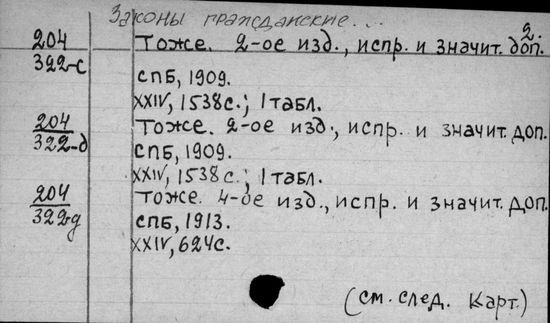 Законы гражданские...
2.
204
322-с
Тоже. 2-ое изд., испр. и значит. доп.
СПБ, 1909.
XXIV, 1538с.; 1 табл.
204
322-д
Тоже. 2-ое изд., испр. и значит. доп.
СПБ, 1909.
XXIV, 1538 с.; 1 табл.
204
322g
Тоже. 4-ое изд., испр. и значит. доп.
СПБ, 1913.
XXIV, 624с.
(см. след. карт.)